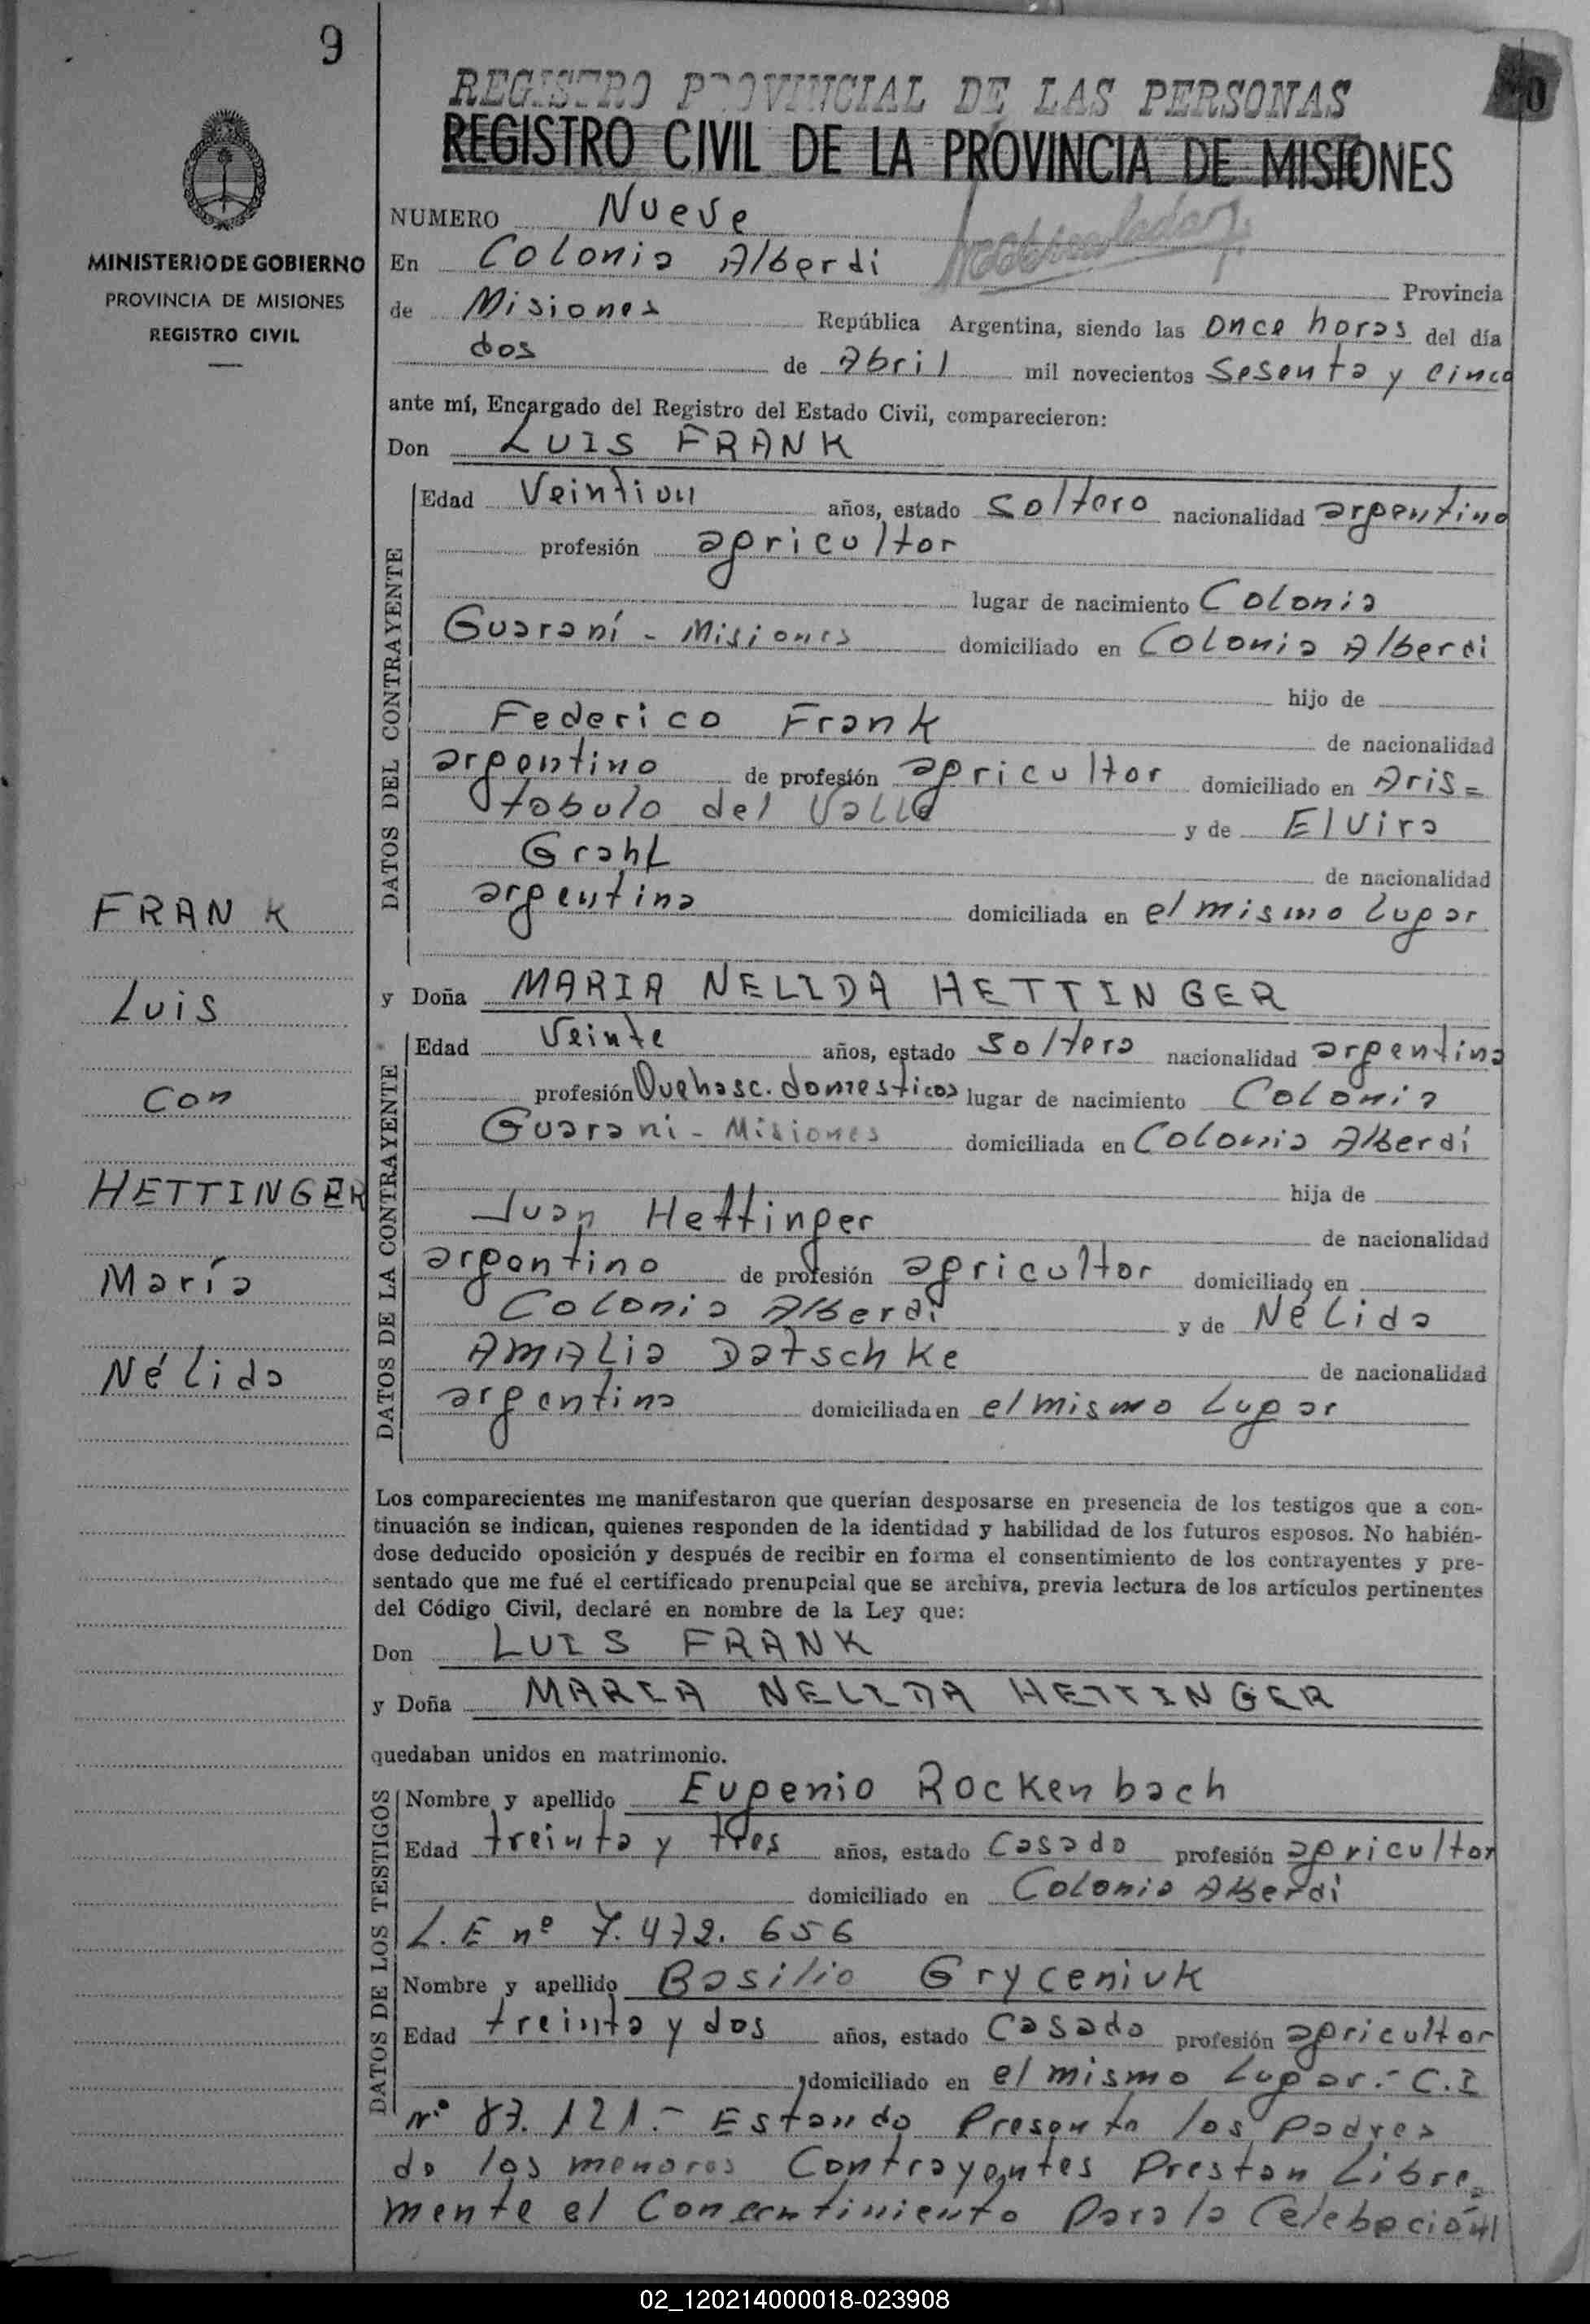 9
REGISTRO PROVINCIAL DE LAS PERSONAS
REGISTRO CIVIL DE LA PROVINCIA DE MISIONES
MINISTERIO DE GOBIERNO
PROVINCIA DE MISIONES
REGISTRO CIVIL
NUMERO Nueve
En Colonia Alberdi
Provincia
de Misiones República Argentina, siendo las once horas del día
dos de Abril mil novecientos Sesenta y cinco
ante mí, Encargado del Registro del Estado Civil, comparecieron:
Don LUIS FRANK
DATOS DEL CONTRAYENTE
Edad Veintiun años, estado soltero nacionalidad argentino
profesión agricultor
lugar de nacimiento Colonia
Guaraní - Misiones domiciliado en Colonia Alberdi
hijo de
Federico Frank de nacionalidad
argentino de profesión agricultor domiciliado en Aris=
tobulo del Valle y de Elvira
Grahl de nacionalidad
argentina domiciliada en el mismo lugar
FRANK
Luis
Con
HETTINGER
María
Nélida
y Doña MARIA NELIDA HETTINGER
DATOS DE LA CONTRAYENTE
Edad Veinte años, estado soltera nacionalidad argentina
profesión Quehasc. domesticos lugar de nacimiento Colonia
Guarani - Misiones domiciliada en Colonia Alberdi
hija de
Juan Hettinger de nacionalidad
argentino de profesión agricultor domiciliado en
Colonia Alberdi y de Nélida
Amalia Datschke de nacionalidad
argentina domiciliada en el mismo Lugar
Los comparecientes me manifestaron que querían desposarse en presencia de los testigos que a con-
tinuación se indican, quienes responden de la identidad y habilidad de los futuros esposos. No habién-
dose deducido oposición y después de recibir en forma el consentimiento de los contrayentes y pre-
sentado que me fué el certificado prenupcial que se archiva, previa lectura de los artículos pertinentes
del Código Civil, declaré en nombre de la Ley que:
Don LUIS FRANK
y Doña MARIA NELIDA HETTINGER
quedaban unidos en matrimonio.
DATOS DE LOS TESTIGOS
Nombre y apellido Eugenio Rockenbach
Edad treinta y tres años, estado Casado profesión agricultor
domiciliado en Colonia Alberdi
L.E nº 7.472.656
Nombre y apellido Basilio Gryceniuk
Edad treinta y dos años, estado Casado profesión agricultor
domiciliado en el mismo Lugar.- C.I
nº 87.121.- Estando Presente los padres
de los menores Contrayentes Prestan Libre=
mente el Concentimiento para la Celebación
02_120214000018-023908